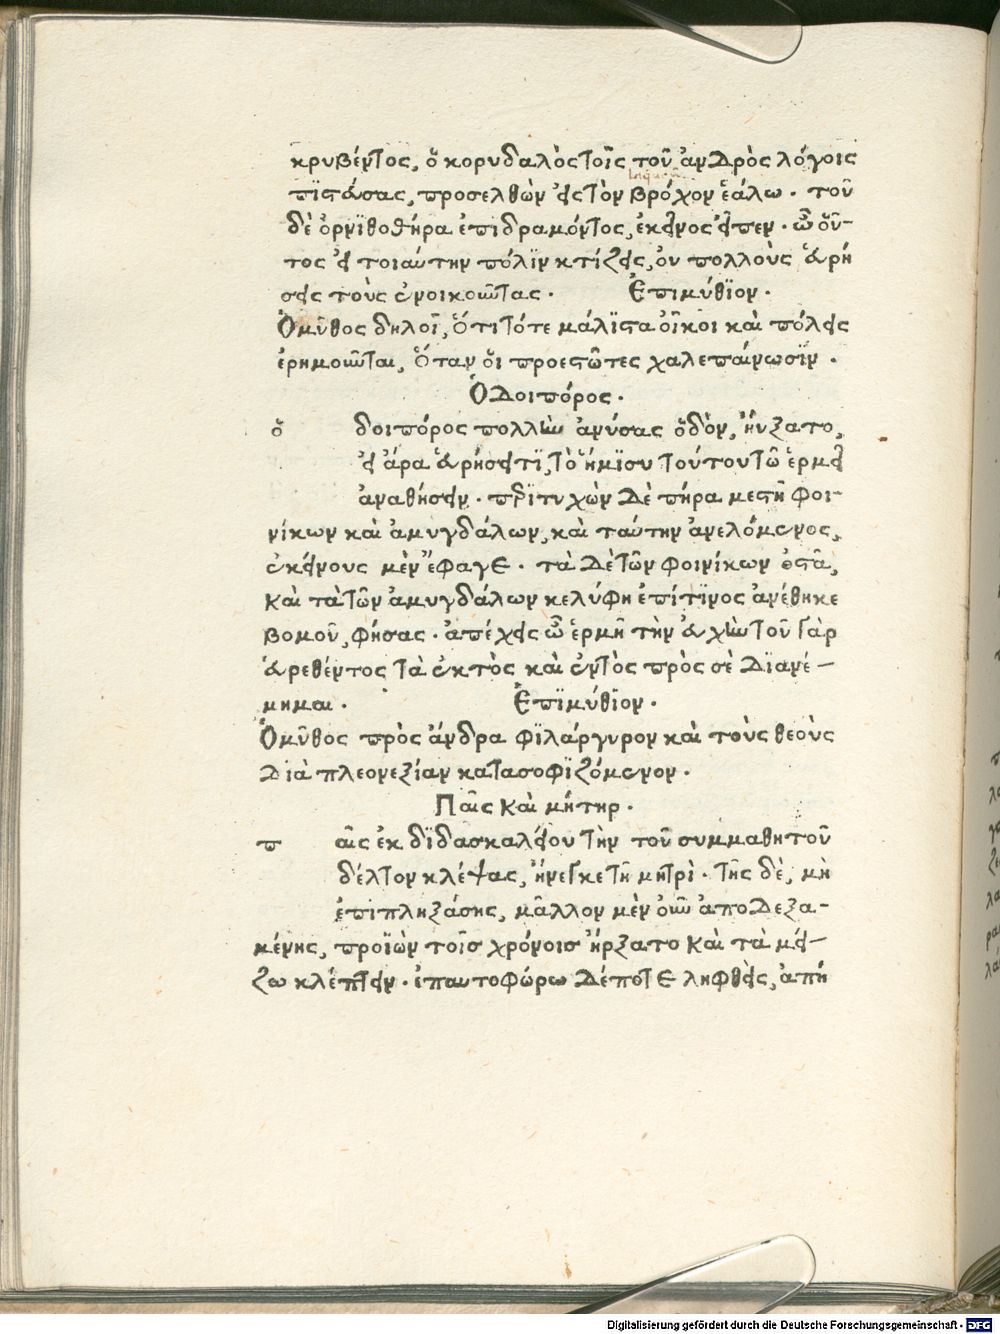 κρυβέντος, ὅ κορυδαλὸς τοῖς τοῦ ἀνδρὸς λόγοις
πϊστεύσας, προσελθὼν εἰς τὸν βρόχον ἑάλω. τοῦ
δὲ ὀρνϊθοθήρα ἐπιδραμόντος, ἐκεῖνος εἶπεν. ὦ οὗ-
τος εἰ τοιαύτην πόλϊν κτίζεις, ὀν πολλοὺς εὑρή
σεις τοὺς ἐνοικοῦντας. Ἐπιμύθϊον.
Ὁμῦθος δηλοῖ, ὅτι τότε μάλϊστα οἶκοι καὶ πόλεις
ἐρημοῦνται, ὅταν ὅι προεστῶτες χαλεπαίνωσϊν.
Ὁδοιπόρος.
ὅ δοιπόρος πολλὴν ἀνύσας ὅδὸν, ἠύξατο,
εἰ ἄρα εὑρήσει τϊ, τὸ ἥμϊσυ τούτου τῶ ἑρμεῖ
ἀναθήσειν. περϊτυχὼν δὲ πήρα μεστῆ φοι-
νίκων καὶ ἀμυγδάλων, καὶ ταύτην ἀνελόμενος,
ἐκείνους μὲν ἔφαγε. τὰ δὲ τῶν φοινίκων ὀστᾶ,
καὶ τὰ τῶν ἀμυγδάλων κελύφη ἐπί τϊνος ἀνέθηκε
βομοῦ, φήσας. ἀπέχεις ὦ ἑρμῆ τὴν εὐχὴν τοῦ γὰρ
εὑρεθέντος τὰ ἐκτὸς καὶ ἐντὸς πρὸς σὲ δϊανέ-
μημαι. Ἐπϊμύθϊον.
Ὁμῦθος πρὸς ἄνδρα φϊλάργυρον καὶ τοὺς θεοὺς
διὰ πλεονεξίαν κατασοφϊζόμενον.
Παῖς καὶ μήτηρ.
π αῖς ἐκ δϊδασκαλείου τὴν τοῦ συμμαθητοῦ
δέλτον κλέψας, ἤνεγκε τῆ μητρὶ. τῆς δὲ, μὴ
ἐπιπληξάσης, μᾶλλον μὲν οὖν ἀποδεξα-
μένης, προϊὼν τοῖσ χρόνοισ ἤρξατο καὶ τὰ μεί-
ζω κλέπτειν. ἐπαυτοφώρω δέποτε ληφθεὶς, ἀπή
Digitalisierung gefördert durch die Deutsche Forschungsgemeinschaft - DFG